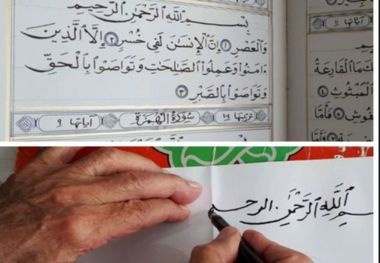 بِسْمِ اللَّهِ الرَّحْمَٰنِ الرَّحِيمِ
وَالْعَصْرِ ۝۱ إِنَّ الْإِنسَانَ لَفِي خُسْرٍ ۝۲ إِلَّا الَّذِينَ
ءَامَنُوا وَعَمِلُوا الصَّالِحَاتِ وَتَوَاصَوْا بِالْحَقِّ
وَتَوَاصَوْا بِالصَّبْرِ ۝۳
سُورَةُ الْهُمَزَةِ آياتها ۹
آياتها
الْقَارِعَةُ
الْمَبْثُوثِ
فَأَمَّا
بسم الله الرحمن الرحيم